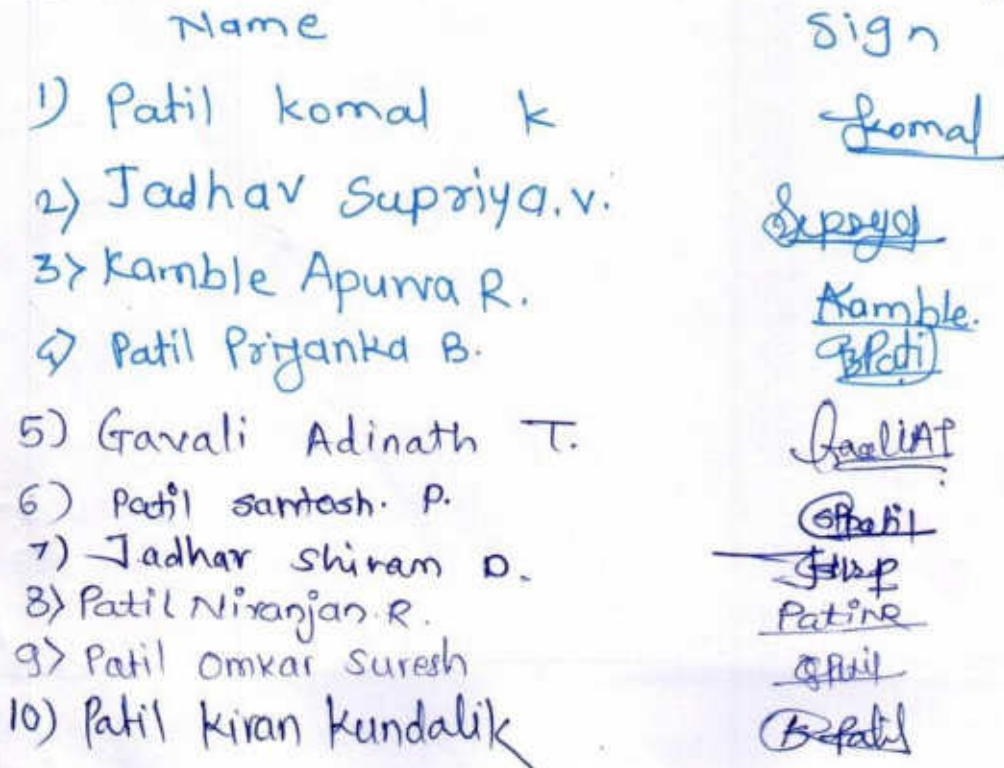 Name Sign
1) Patil komal k komal
2) Jadhav Supriya.v. Supriya
3) Kamble Apurva R. Kamble.
4) Patil Priyanka B. BPatil
5) Gavali Adinath T.
6) Patil santosh. P. SPatil
7) Jadhav shivam D.
8) Patil Niranjan.R. PatilNR
9) Patil omkar Suresh
10) Patil kiran kundalik